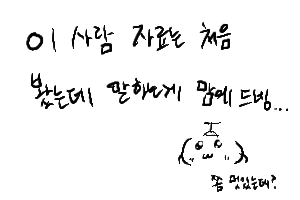 이 사람 자료는 처음
봤는데 말하는게 맘에 드넹...
쫌 멋있는데?